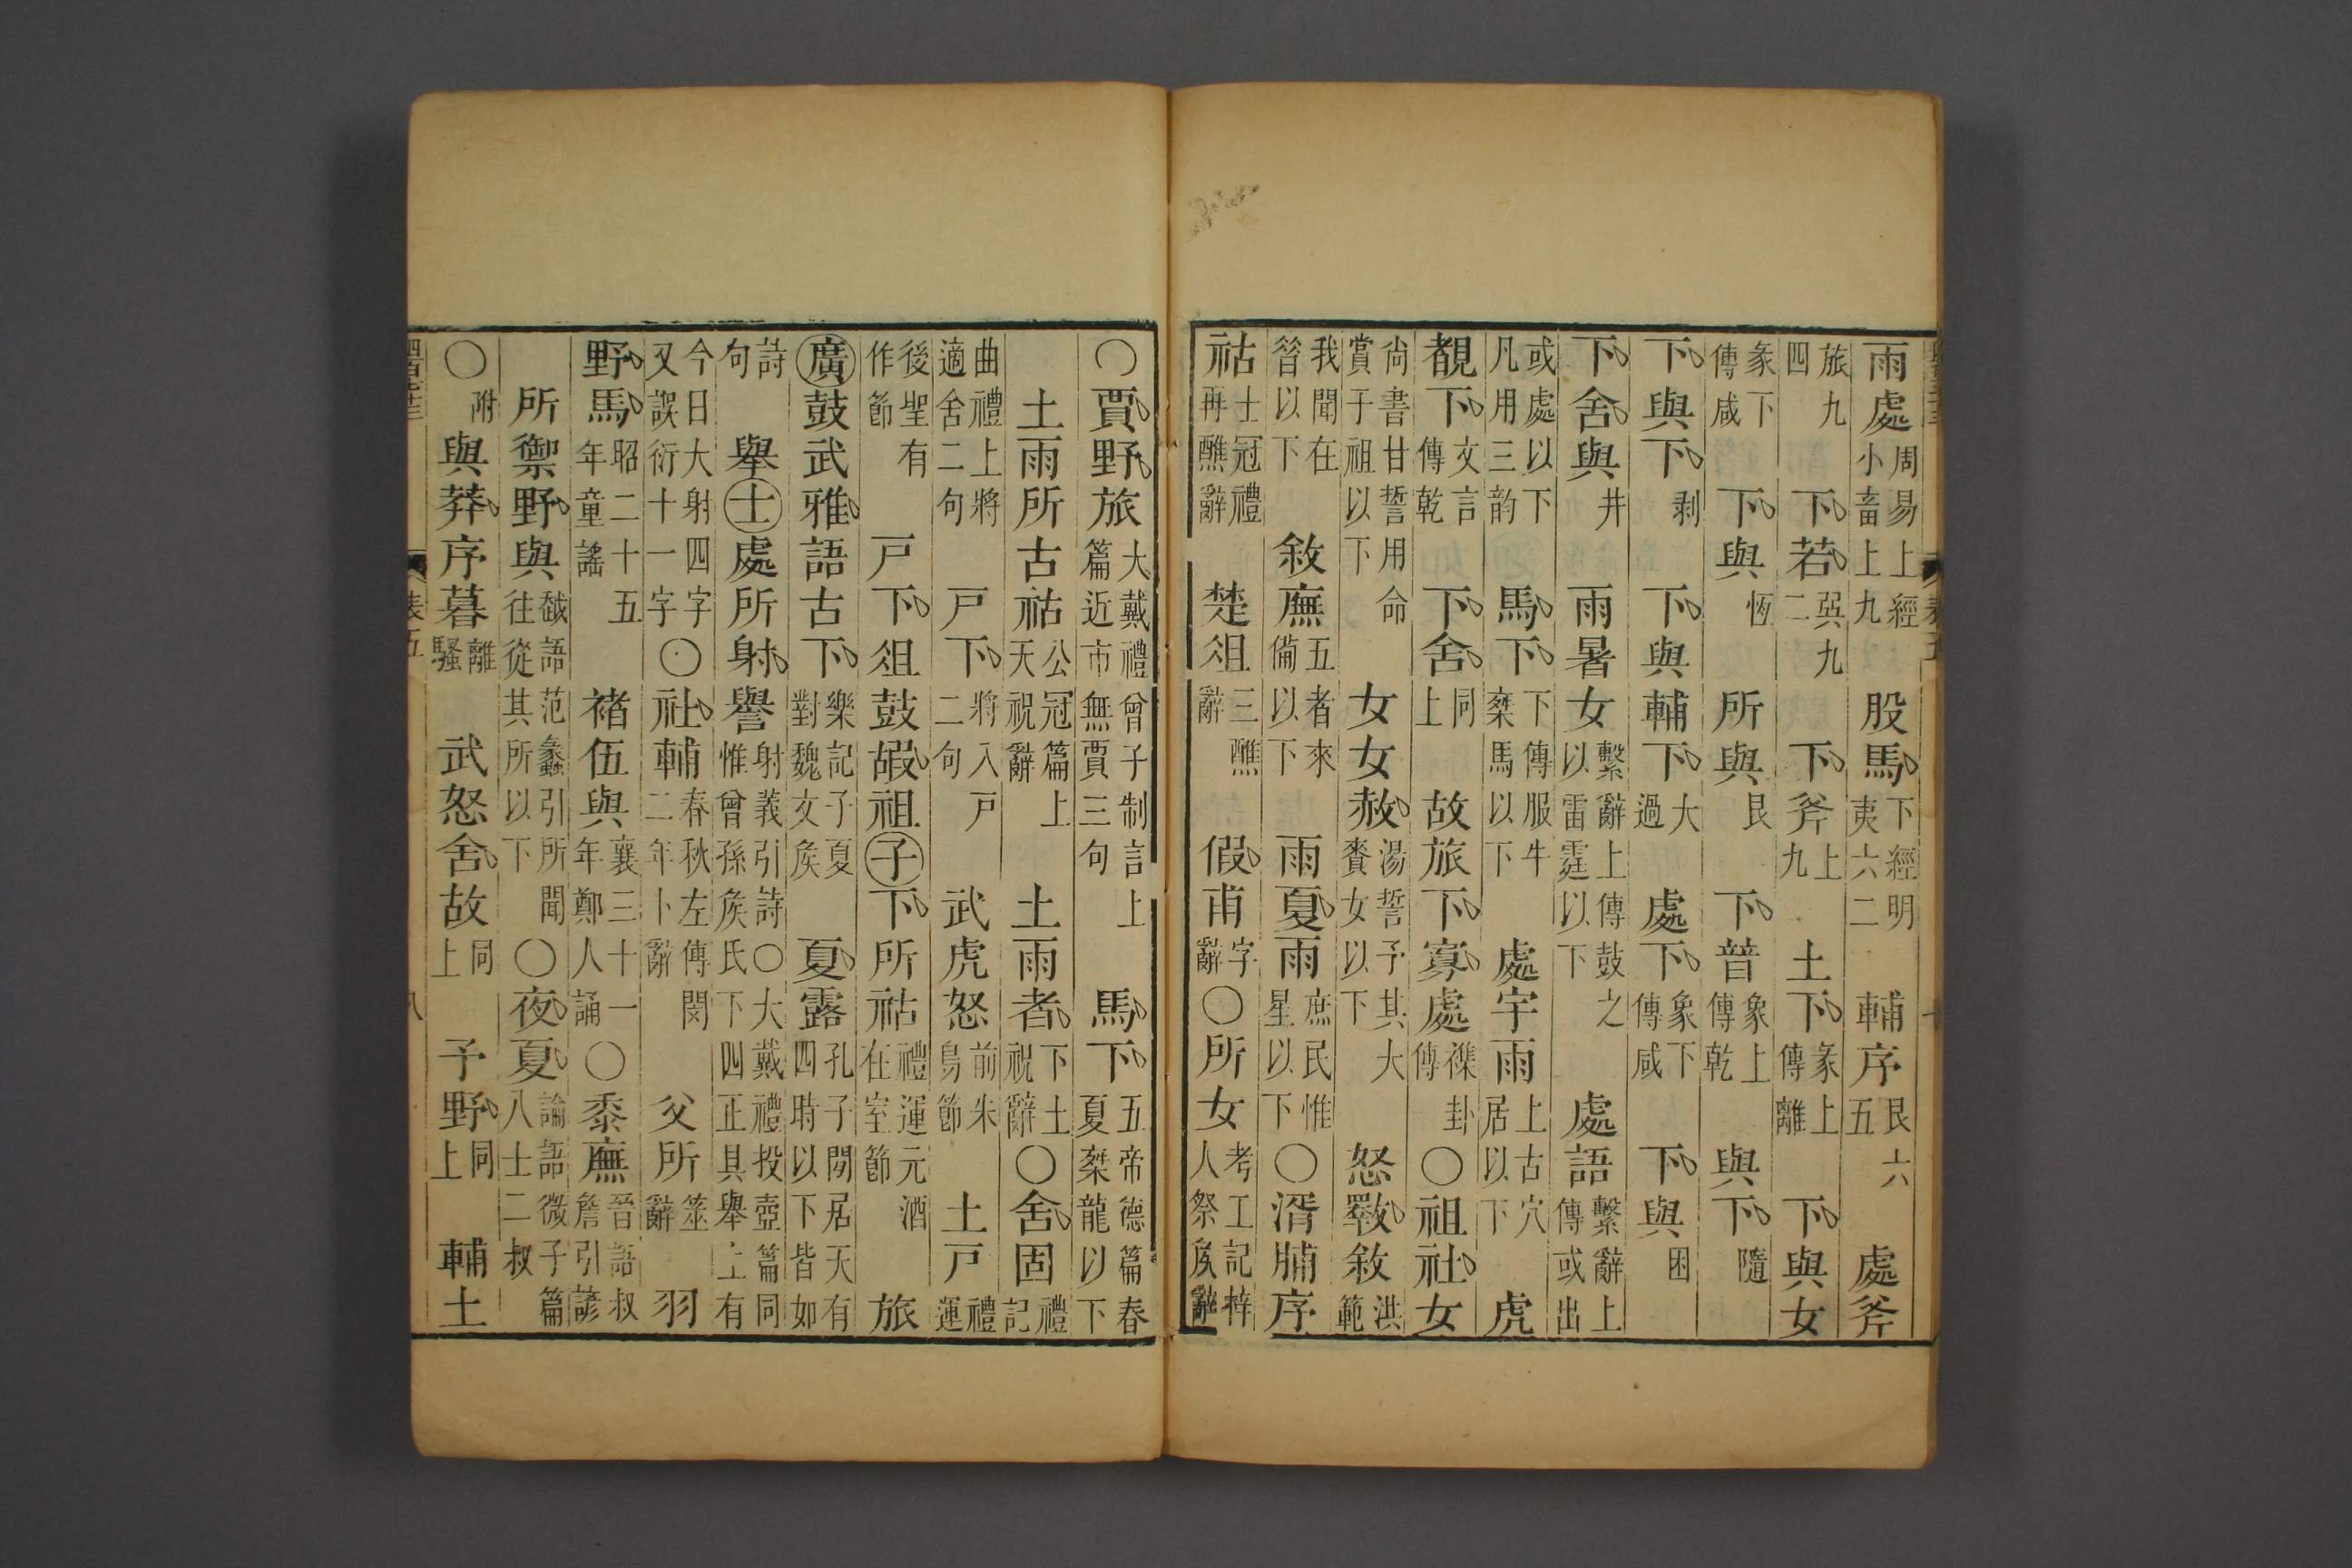 雨處周易上經小畜上九　股馬下經明夷六二　輔序艮六五　處斧
旅九四　下若巽九二　下斧上九　土下彖上傳離　下與女
彖下傳咸　下與恆　所與艮　下普象上傳乾　與下隨
下與下剥　下與輔下大過　處下象下傳咸　下與困
下舍與井　雨暑女繫辭上傳鼓之以雷霆以下　處語繫辭上傳或出
或處以下凡用三韵　馬下下傳服牛椉馬以下　處宇雨上古穴居以下　虎
覩下文言傳乾　下舍同上　故旅下寡處襍卦傳　〇祖社女
尚書甘誓用命賞于祖以下　女女赦湯誓予其大賚女以下　怒斁敘洪範
我聞在昝以下　敘廡五者來僃以下　雨夏雨庶民惟星以下　〇湑脯序
祜士冠禮再醮辭　楚俎三醮辭　假甫字辭　〇所女考工記梓人祭侯辭
〇賈野旅大戴禮曾子制言上篇近市無賈三句　馬下五帝德篇春夏椉龍以下
土雨所古祜公冠篇上天祝辭　土雨者下土祝辭　〇舍固禮記
曲禮上將適舍二句　戸下將入戸二句　武虎怒前朱鳥節　土戸禮運
後聖有作節　戸下俎鼓嘏祖子下所祜禮運元酒在室節　旅
廣鼓武雅語古下樂記子夏對魏文矦　夏露孔子閒居天有四時以下皆如
詩句　舉士處所射譽射義引詩惟曾孫矦氏〇大戴禮投壺篇同下四正具舉上有
今日大射四字又誤衍十一字　〇社輔春秋左傳閔二年卜辭　父所筮辭　羽
野馬昭二十五年童謠　褚伍與襄三十一年鄭人誦　〇黍廡晉語叔詹引諺
所禦野與越語范蠡引所聞往從其所以下　〇夜夏論語微子篇八士二叔
〇附　與莽序暮離騷　武怒舍故同上　予野同上　輔土
表五
八